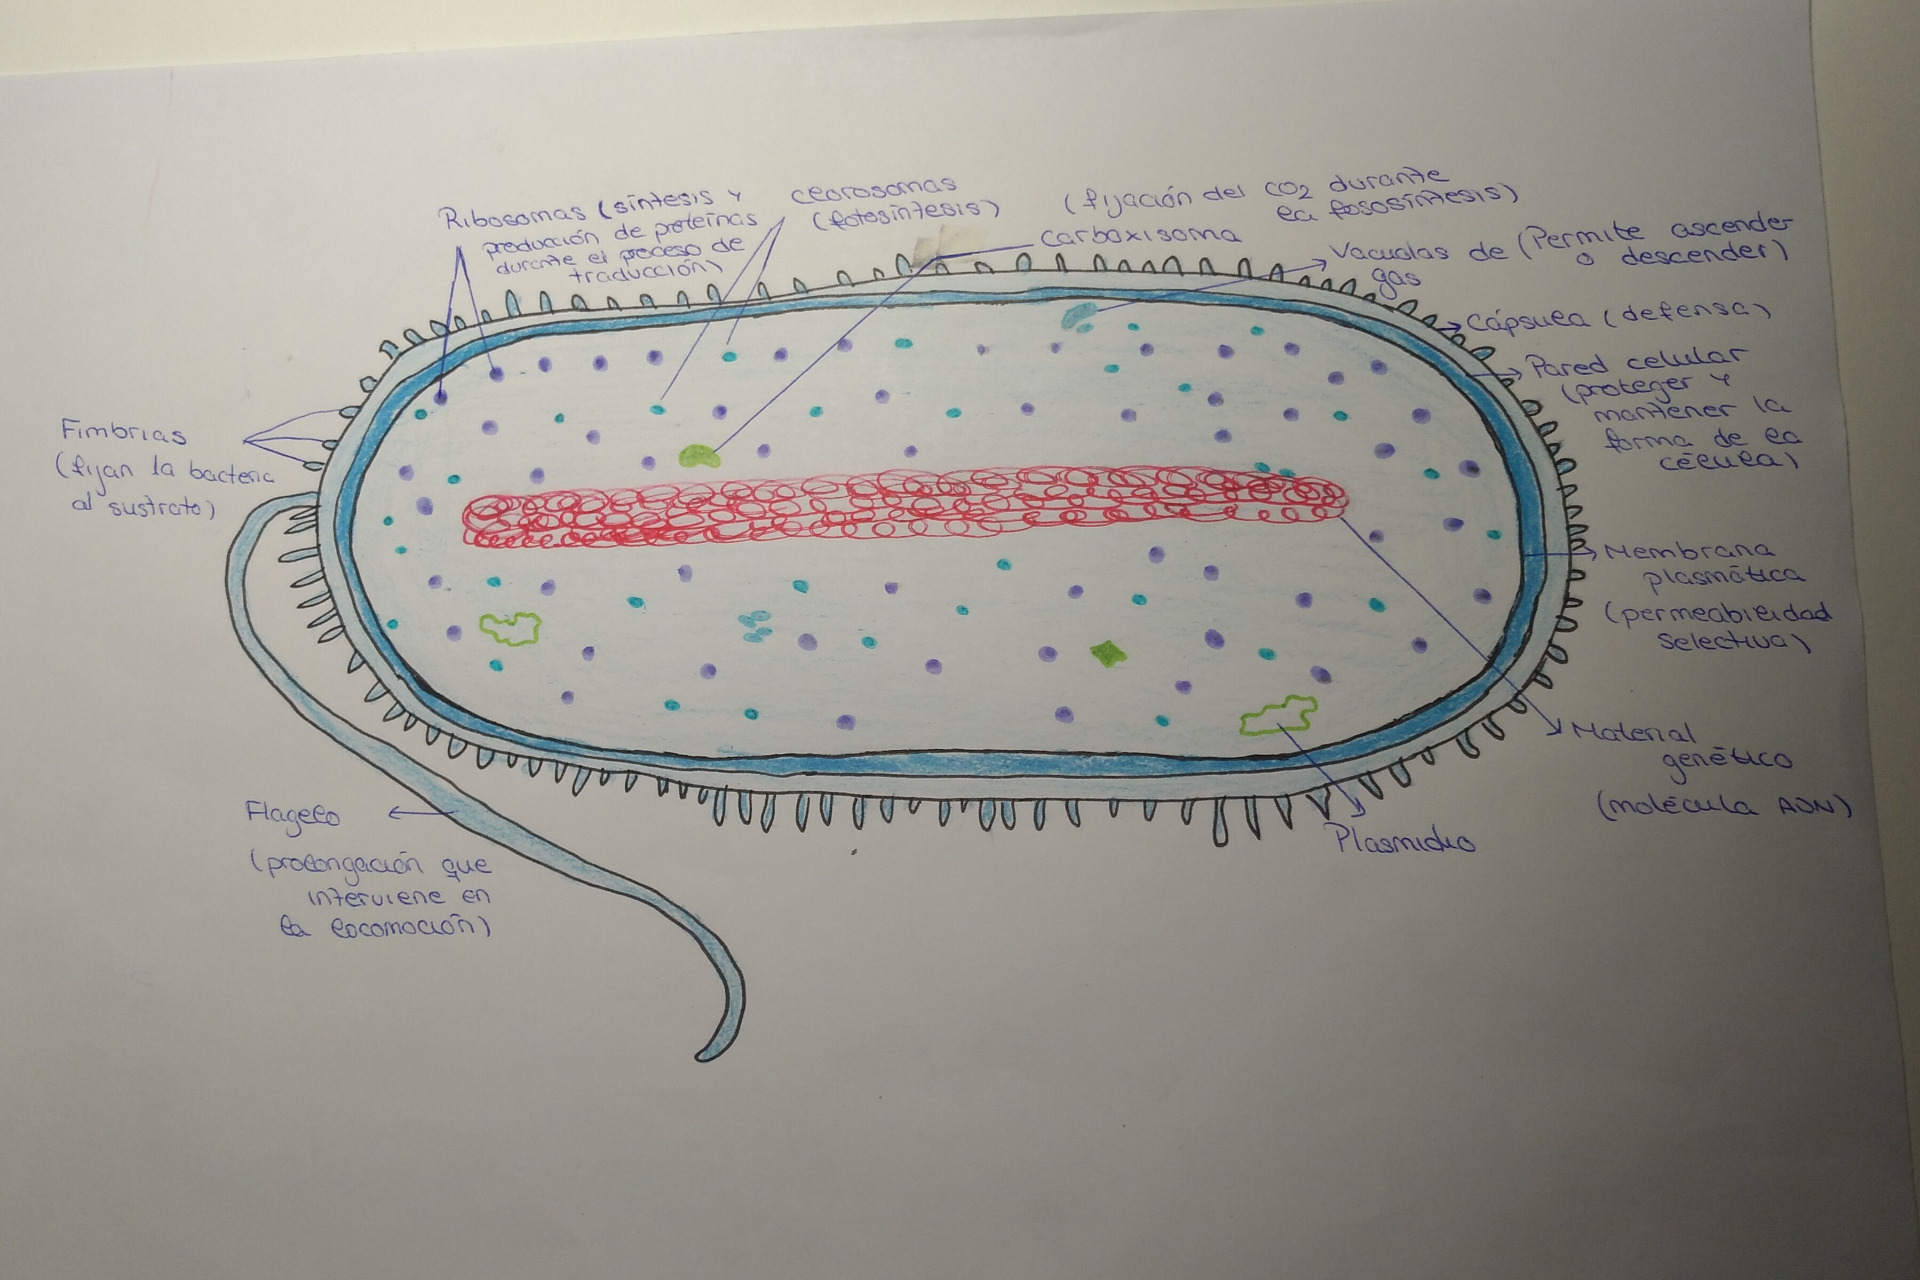 Ribosomas (síntesis y
producción de proteínas
durante el proceso de
traducción)
clorosomas
(fotosíntesis)
(fijación del CO2 durante
la fososíntesis)
carboxisoma
Vacuolas de (Permite ascender
gas o descender)
Cápsula (defensa)
Pared celular
(proteger y
mantener la
forma de la
célula)
Membrana
plasmática
(permeabilidad
selectiva)
Material
genético
(molécula ADN)
Plasmidio
Fimbrias
(fijan la bacteria
al sustrato)
Flagelo
(prolongación que
interviene en
la locomoción)